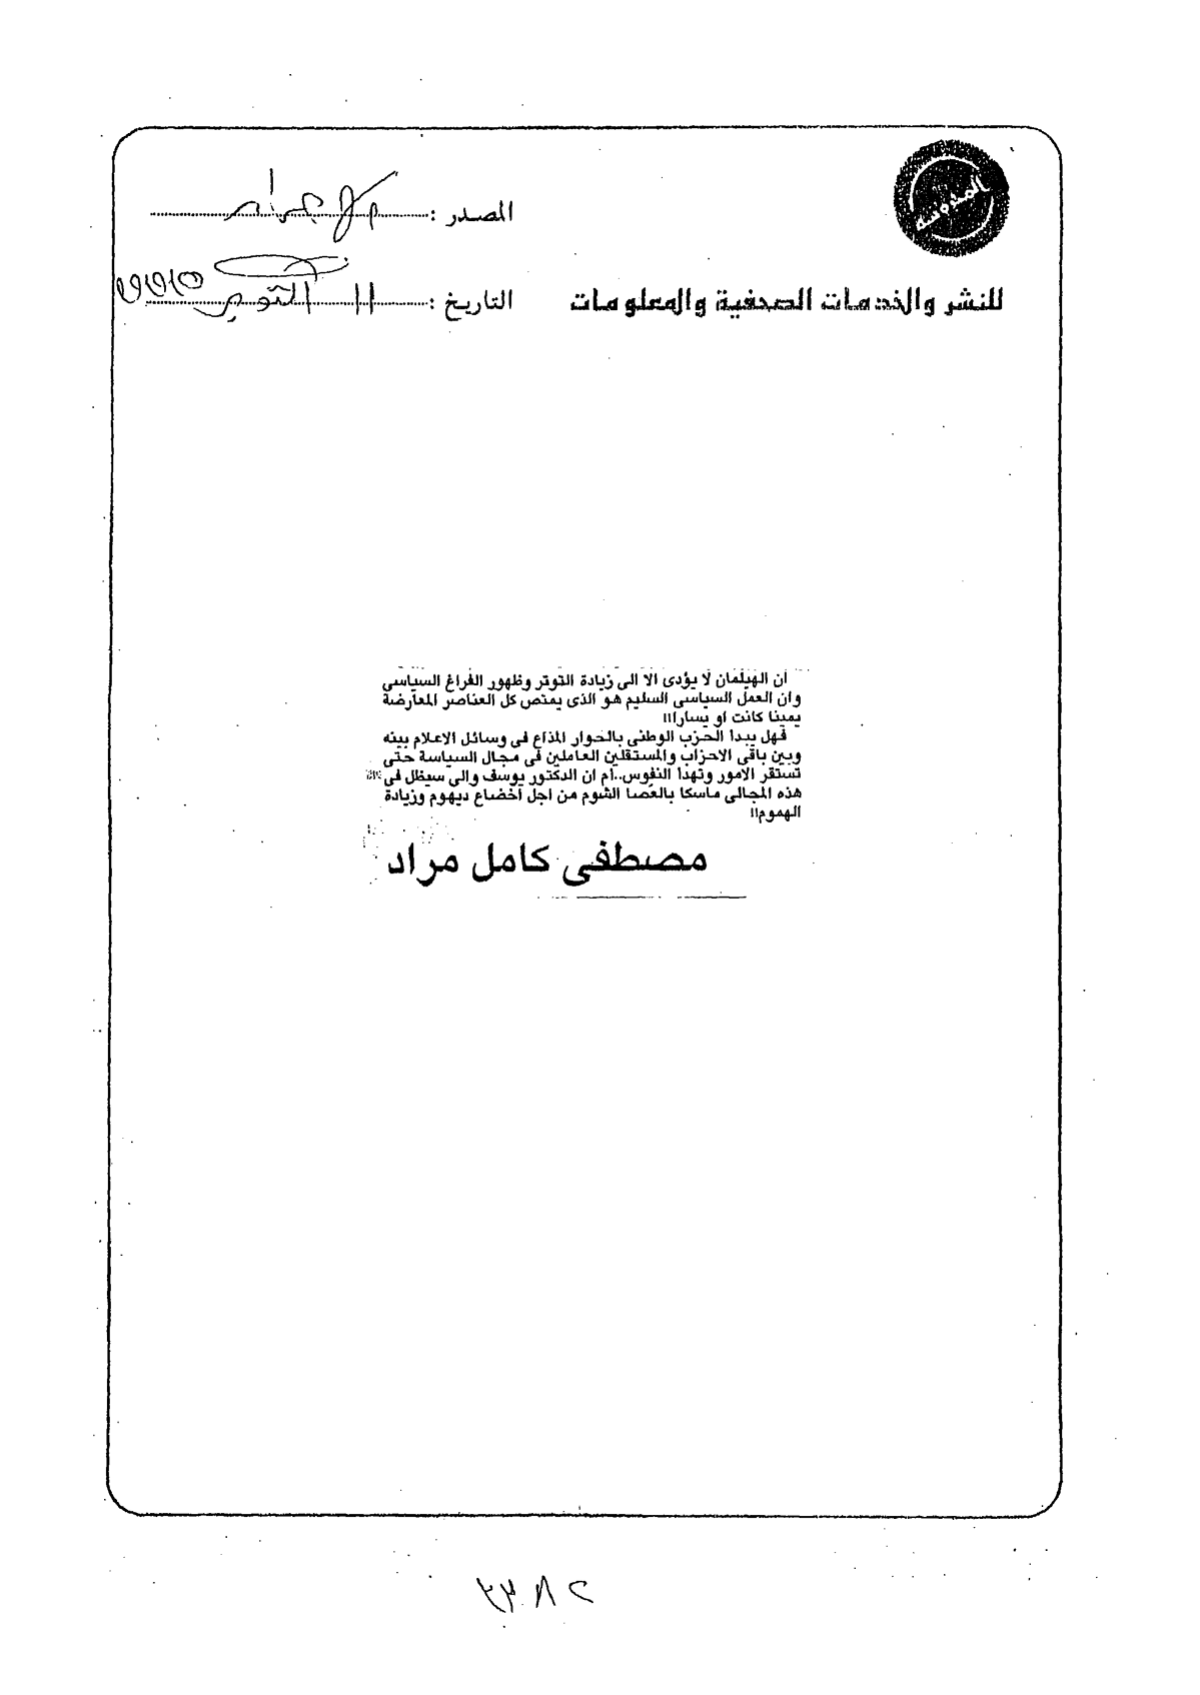 المصدر :
للنشر والخدمات الصحفية والمعلومات
التاريخ : ١١ اكتوبر
ان الهيلمان لا يؤدى الا الى زيادة التوتر وظهور الفراغ السياسى
وان العمل السياسى السليم هو الذى يمتص كل العناصر المعارضة
يمينا كانت او يسارا!!
فهل يبدا الحزب الوطنى بالحوار المذاع فى وسائل الاعلام بينه
وبين باقى الاحزاب والمستقلين العاملين فى مجال السياسة حتى
تستقر الامور وتهدا النفوس..أم ان الدكتور يوسف والى سيظل فى
هذه المجالى ماسكا بالعصا الشوم من اجل اخضاع ديهوم وزيادة
الهموم!!
مصطفى كامل مراد